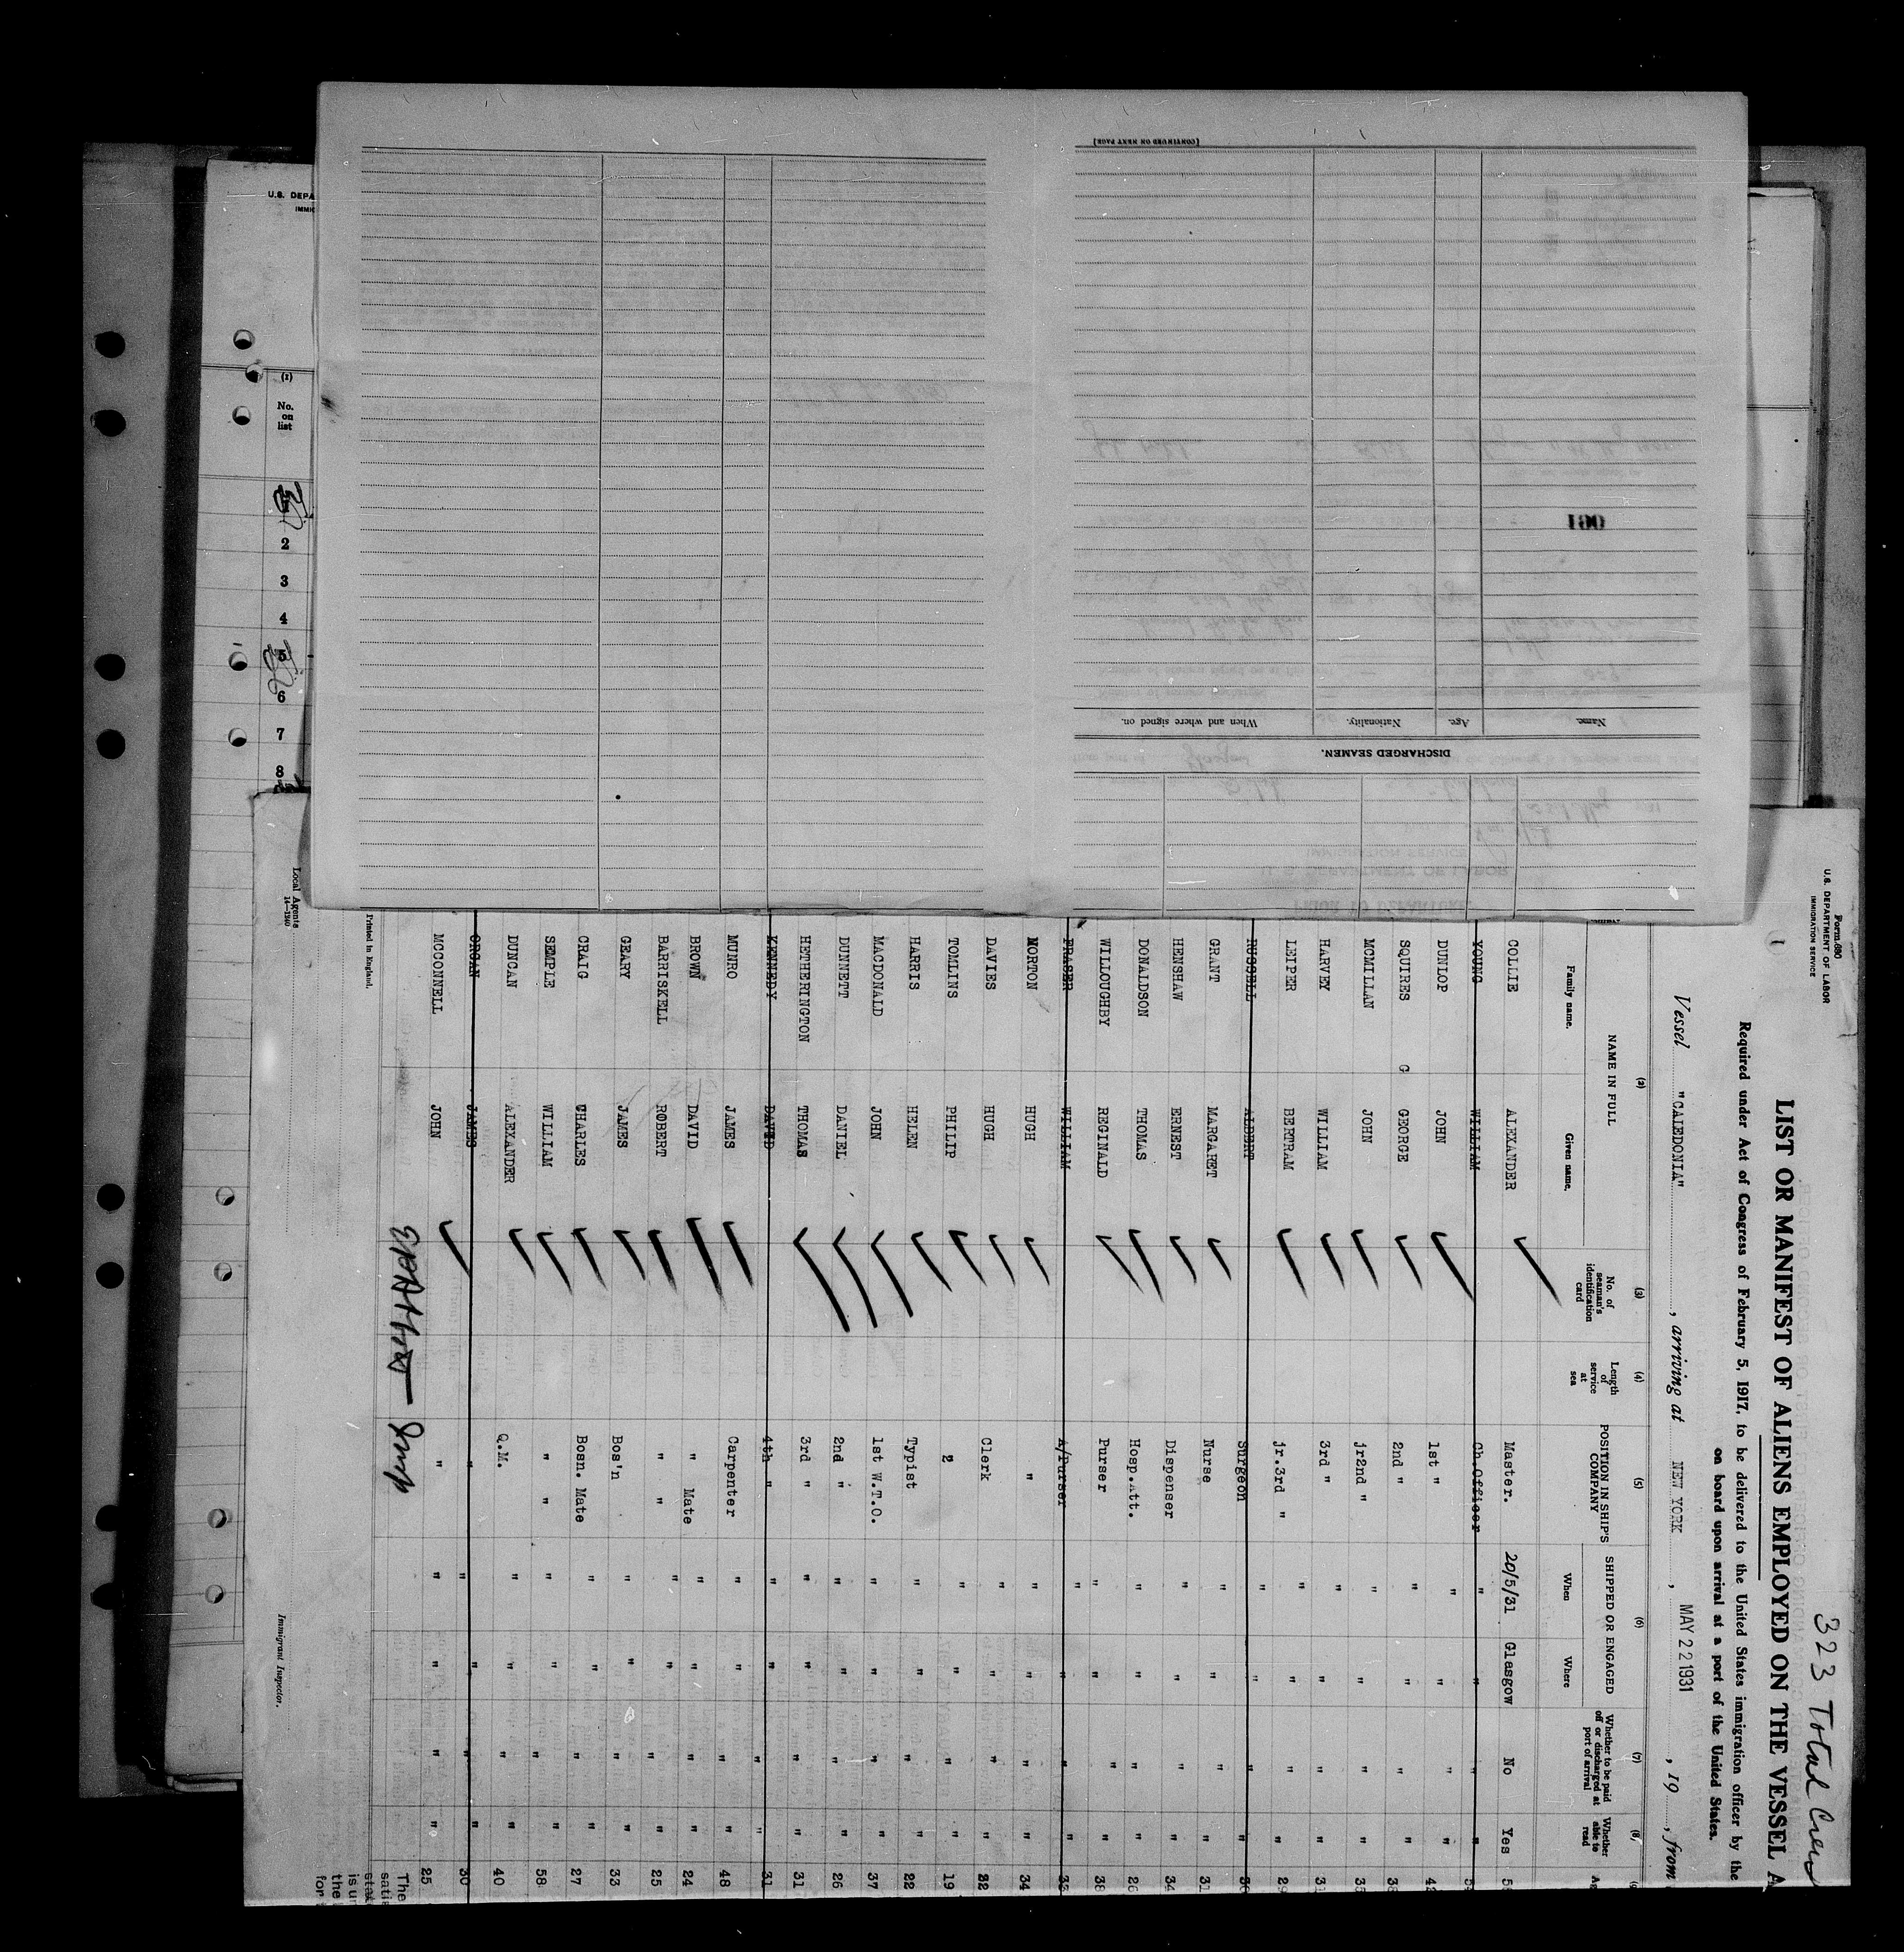 Form 680
U.S. DEPARTMENT OF LABOR
IMMIGRATION SERVICE
323 Total Crew
LIST OR MANIFEST OF ALIENS EMPLOYED ON THE VESSEL A
Required under Act of Congress of February 5, 1917, to be delivered to the United States immigration officer by the
on board upon arrival at a port of the United States.
Vessel "CALEDONIA", arriving at NEW YORK, MAY 22 1931, 19, from
(2) (3) (4) (5) (6) (7) (8)
NAME IN FULL
Family name. Given name.
No. of seaman's identification card
Length of service at sea
POSITION IN SHIP'S COMPANY
SHIPPED OR ENGAGED
When Where
Whether to be paid off or discharged at port of arrival
Whether able to read
COLLIE ALEXANDER Master. 20/5/31 Glasgow No Yes
YOUNG WILLIAM Ch.Officer " " " "
DUNLOP JOHN 1st " " " " "
SQUIRES G GEORGE 2nd " " " " "
MCMILLAN JOHN jr2nd " " " " "
HARVEY WILLIAM 3rd " " " " "
LEIPER BERTRAM jr.3rd " " " " "
RUSSELL ALBERT Surgeon " " " "
GRANT MARGARET Nurse " " " "
HENSHAW ERNEST Dispenser " " " "
DONALDSON THOMAS Hosp.Att. " " " "
WILLOUGHBY REGINALD Purser " " " "
FRASER WILLIAM A/Purser " " " "
NORTON HUGH " " " " " 34
DAVIES HUGH Clerk " " " " 22
TOMLINS PHILIP " " " " " 19
HARRIS HELEN Typist " " " " 22
MACDONALD JOHN 1st W.T.O. " " " " 37
DUNNETT DANIEL 2nd " " " " " 26
HETHERINGTON THOMAS 3rd " " " " " 31
KENNEDY DAVID 4th " " " " " 31
MUNRO JAMES Carpenter " " " " 48
BROWN DAVID " Mate " " " " 24
BARRISKELL ROBERT " " " " " " 25
GEARY JAMES Bos'n " " " " 33
CRAIG CHARLES Bosn. Mate " " " " 27
SEMPLE WILLIAM " " " " " " 58
DUNCAN ALEXANDER Q.M. " " " " 40
ORGAN JAMES " " " " " 30
MCCONNELL JOHN " " " " " 25
Printed in England.
Local Agents
14—1240
Immigrant Inspector.
The
is u
the
for
U.S. DEPA
IMMIG
(1)
No. on list
2
3
4
5
6
7
8
[CONTINUED ON NEXT PAGE]
DISCHARGED SEAMEN.
Name. Age. Nationality. When and where signed on.